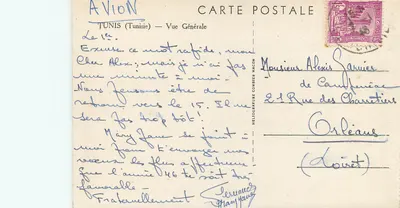 AVION
CARTE POSTALE
TUNIS (Tunisie) — Vue Générale
Le 1er
Excuse ce mot rapide, mon
Cher Alex; mais je n'ai pas
une minute à moi.
Nous pensons être de
retour vers le 15. Il ne
sera pas trop tôt!
Mary Jane se joint à
moi pour t'envoyer nos
voeux les plus affectueux
que l'année 46 te soit très
favorable —
Fraternellement
Monsieur Alexis Garnier
de
21 Rue des Charretiers
Orléans
(Loiret)